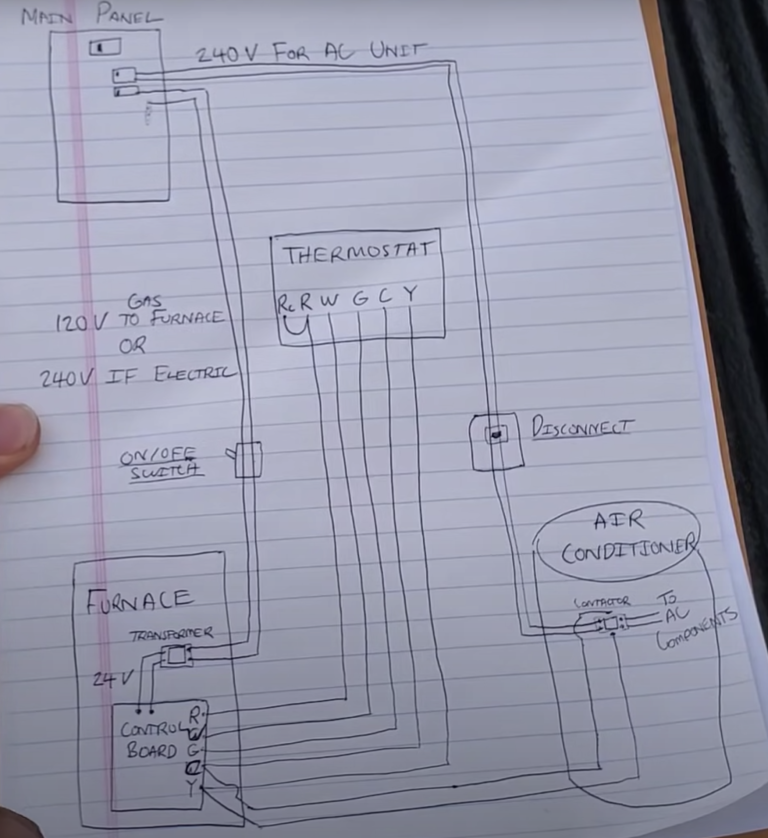 MAIN PANEL
240V FOR AC UNIT
THERMOSTAT
Rc R W G C Y
GAS
120V TO FURNACE
OR
240V IF ELECTRIC
ON/OFF
SWITCH
DISCONNECT
AIR
CONDITIONER
CONTACTOR
TO
AC
COMPONENTS
FURNACE
TRANSFORMER
24V
CONTROL
BOARD
R
W
G
C
Y